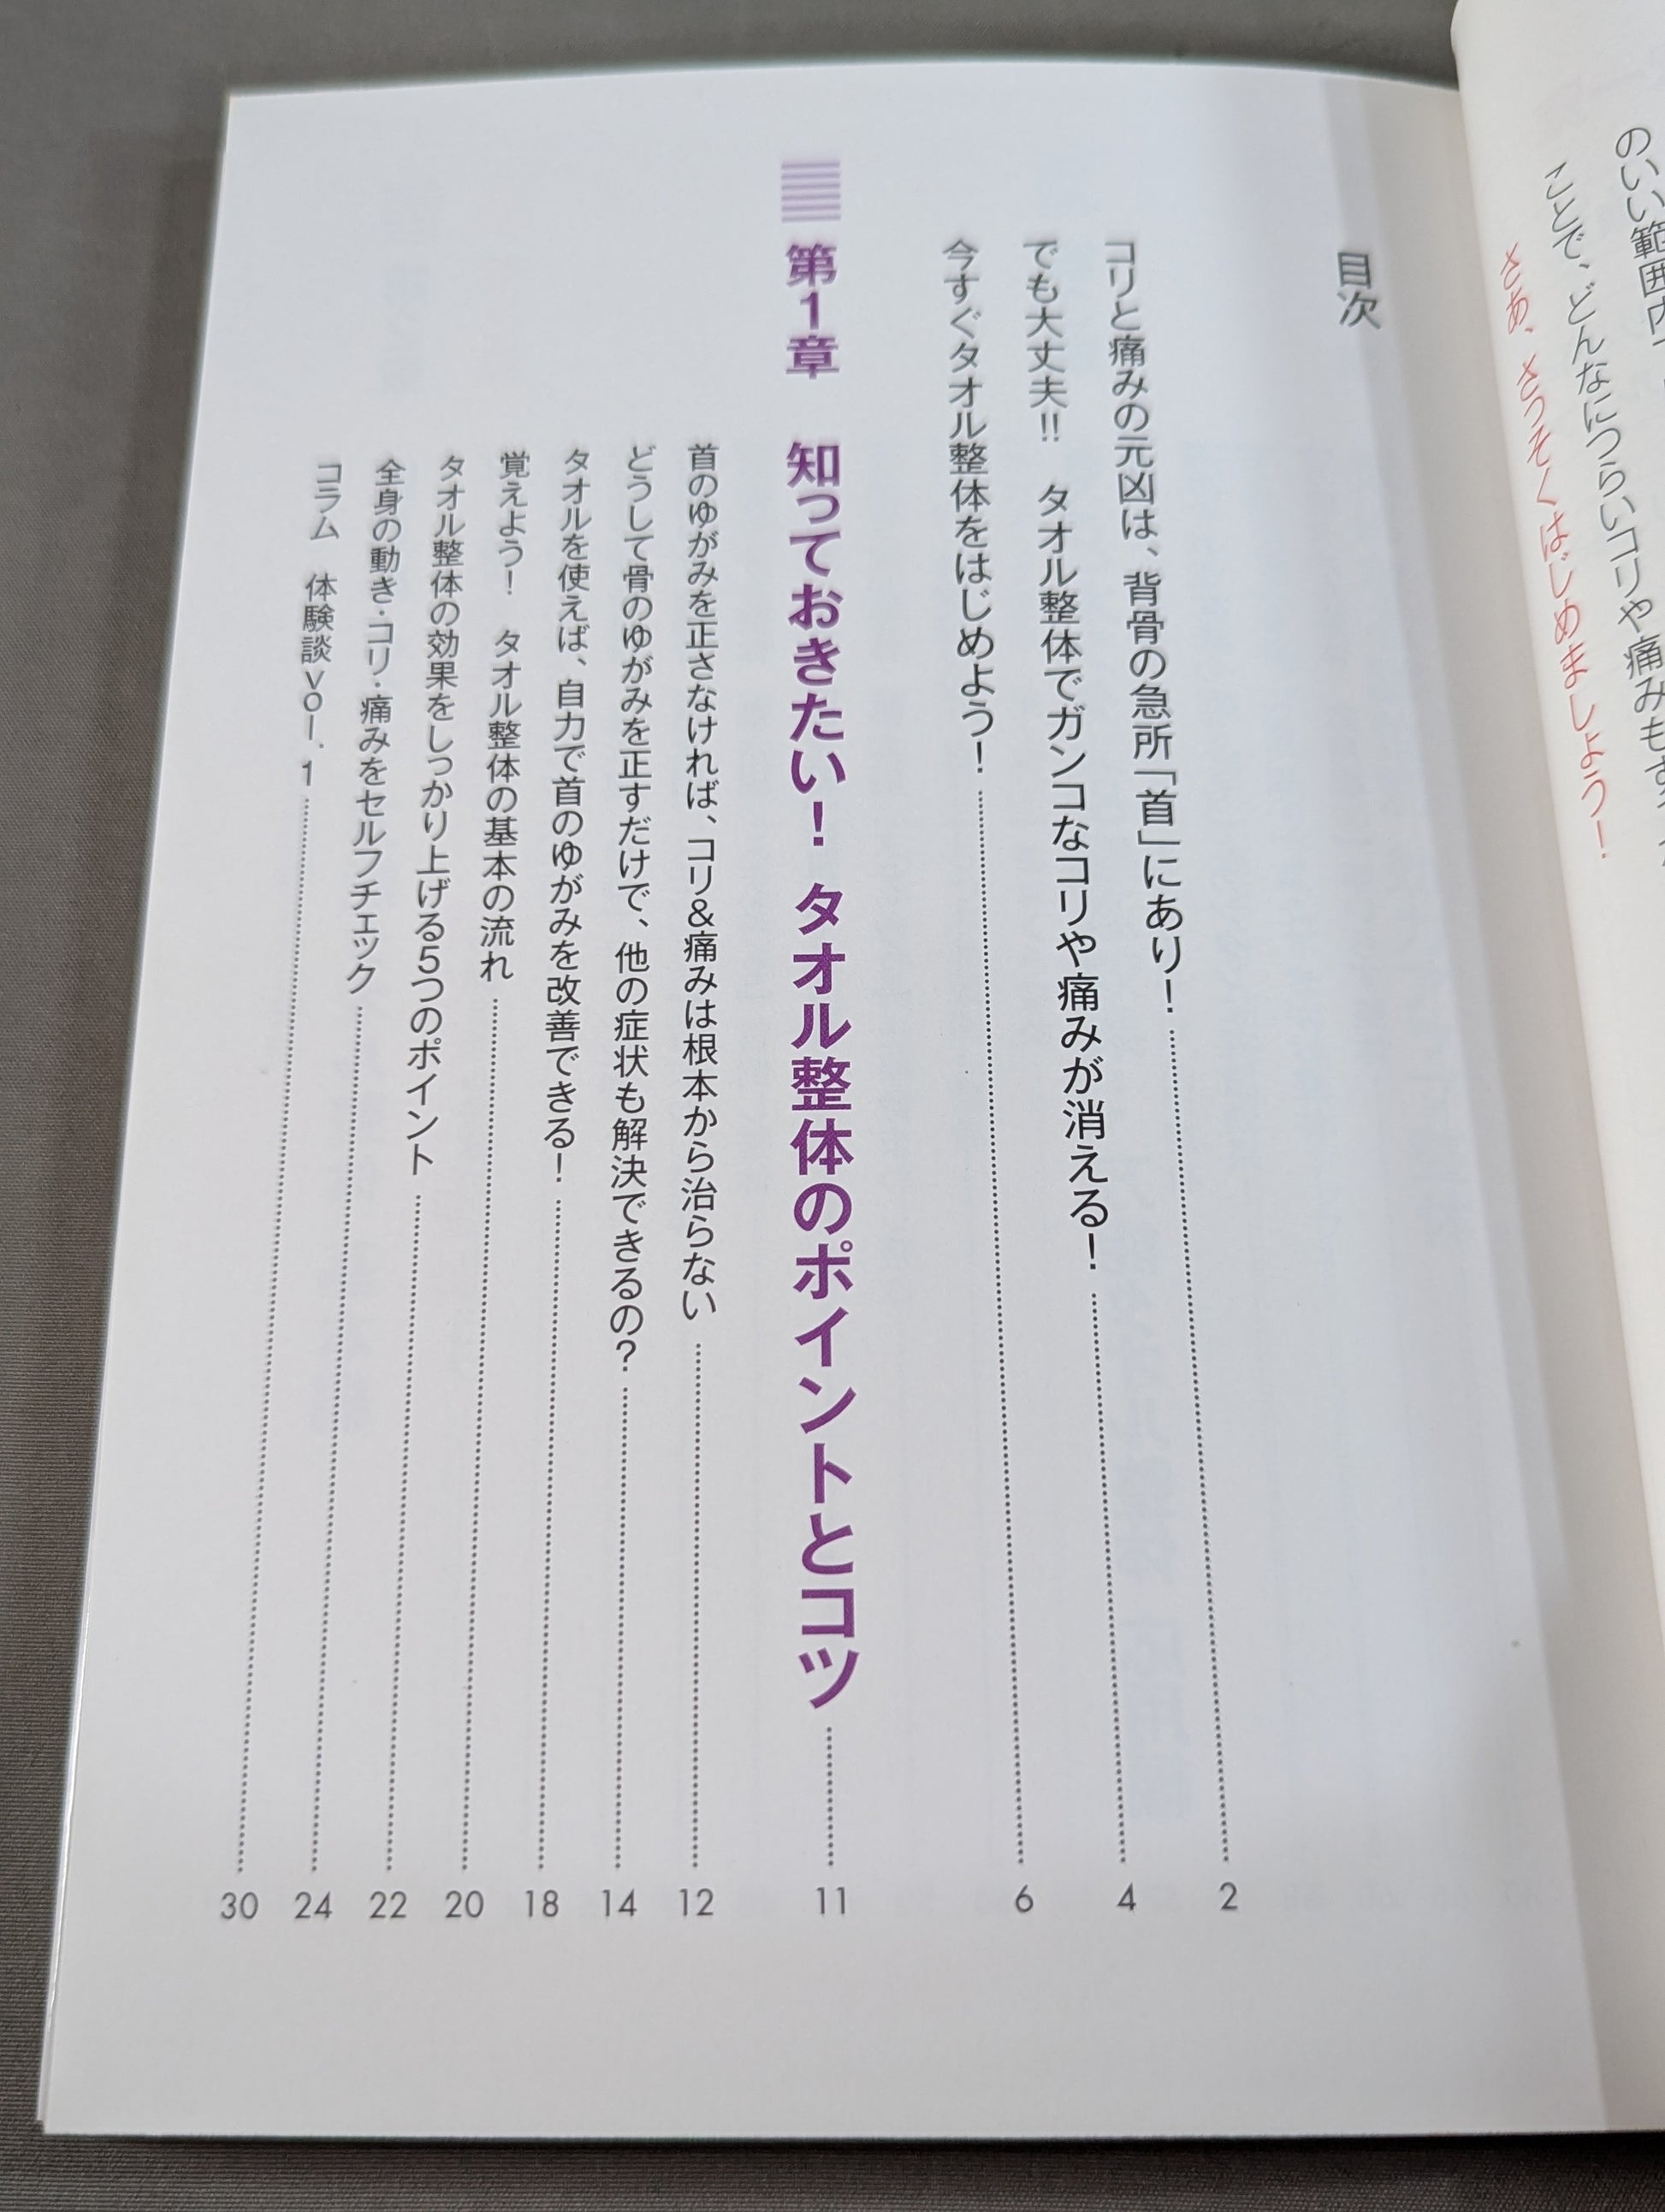 のいい範囲内
ことで、どんなにつらいコリや痛みも
さあ、さっそくはじめましょう！
目次
コリと痛みの元凶は、背骨の急所「首」にあり！ 2
でも大丈夫!! タオル整体でガンコなコリや痛みが消える！ 4
今すぐタオル整体をはじめよう！ 6
第1章 知っておきたい！ タオル整体のポイントとコツ 11
首のゆがみを正さなければ、コリ&痛みは根本から治らない 12
どうして骨のゆがみを正すだけで、他の症状も解決できるの？ 14
タオルを使えば、自力で首のゆがみを改善できる！ 18
覚えよう！ タオル整体の基本の流れ 20
タオル整体の効果をしっかり上げる5つのポイント 22
全身の動き・コリ・痛みをセルフチェック 24
コラム 体験談vol.1 30